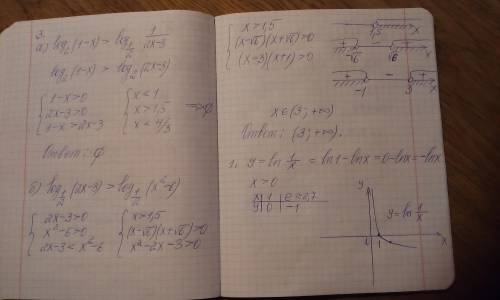 3.
а) log₂(1-x) > log_{1/2} 1/(2x-3)
log₂(1-x) > log₂(2x-3)
{ 1-x>0
2x-3>0
1-x>2x-3
{ x<1
x>1,5
x<4/3
=> ∅
Ответ: ∅
б) log_{1/2}(2x-3) > log_{1/2}(x²-6)
{ 2x-3>0
x²-6>0
2x-3<x²-6
{ x>1,5
(x-√6)(x+√6)>0
x²-2x-3>0
{ x>1,5
(x-√6)(x+√6)>0
(x-3)(x+1)>0
1,5 x
+ - +
-√6 √6 x
+ - +
-1 3 x
x∈(3; +∞)
Ответ: (3; +∞).
1. y = ln 1/x = ln1 - lnx = 0 - lnx = -lnx
x>0
x | 1 | e≈2,7
y | 0 | -1
y
y = ln 1/x
0 1 x